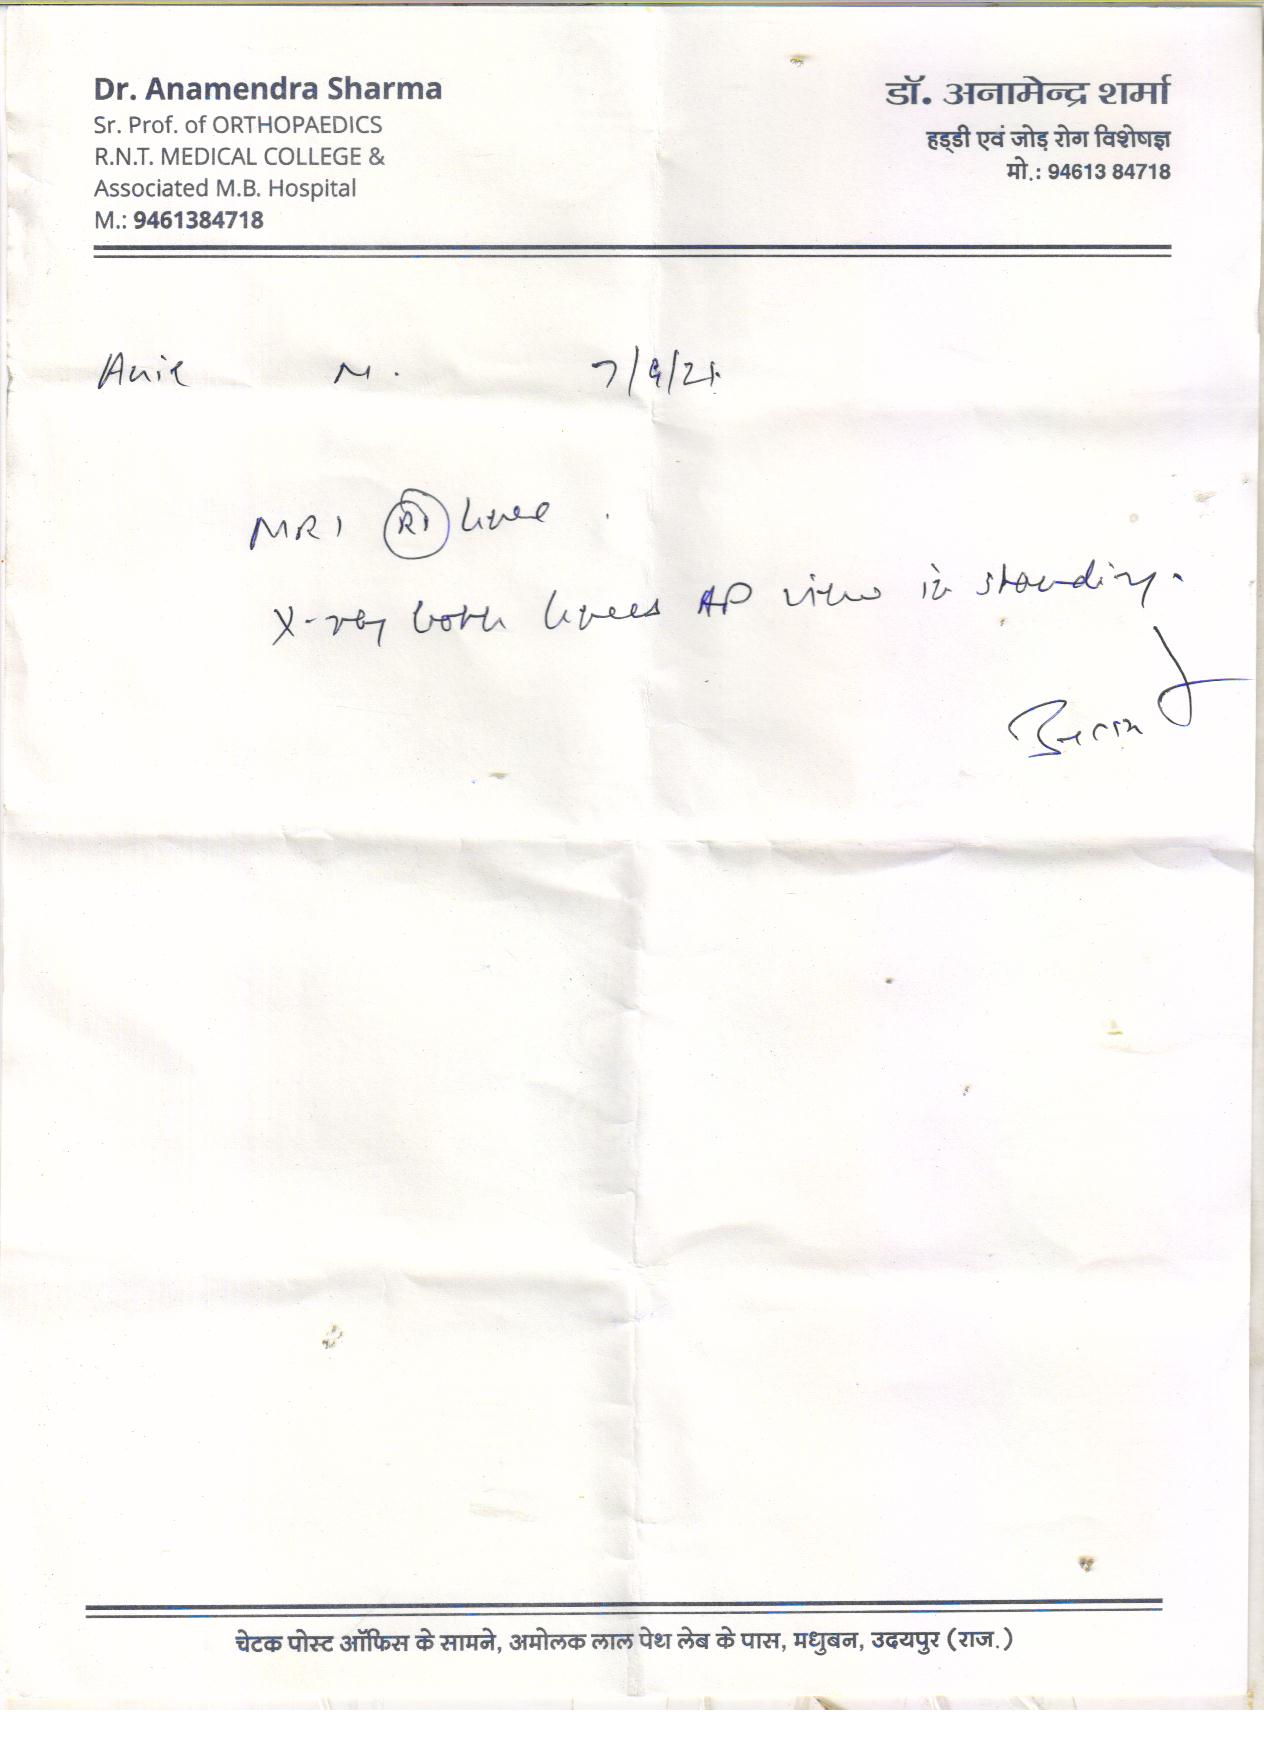 Dr. Anamendra Sharma
Sr. Prof. of ORTHOPAEDICS
R.N.T. MEDICAL COLLEGE &
Associated M.B. Hospital
M.: 9461384718
डॉ. अनामेन्द्र शर्मा
हड्डी एवं जोड़ रोग विशेषज्ञ
मो.: 94613 84718
Anil M. 7/9/21.
MRI Rt knee.
X-ray both knees AP view in standing.
चेटक पोस्ट ऑफिस के सामने, अमोलक लाल पेथ लेब के पास, मधुबन, उदयपुर (राज.)